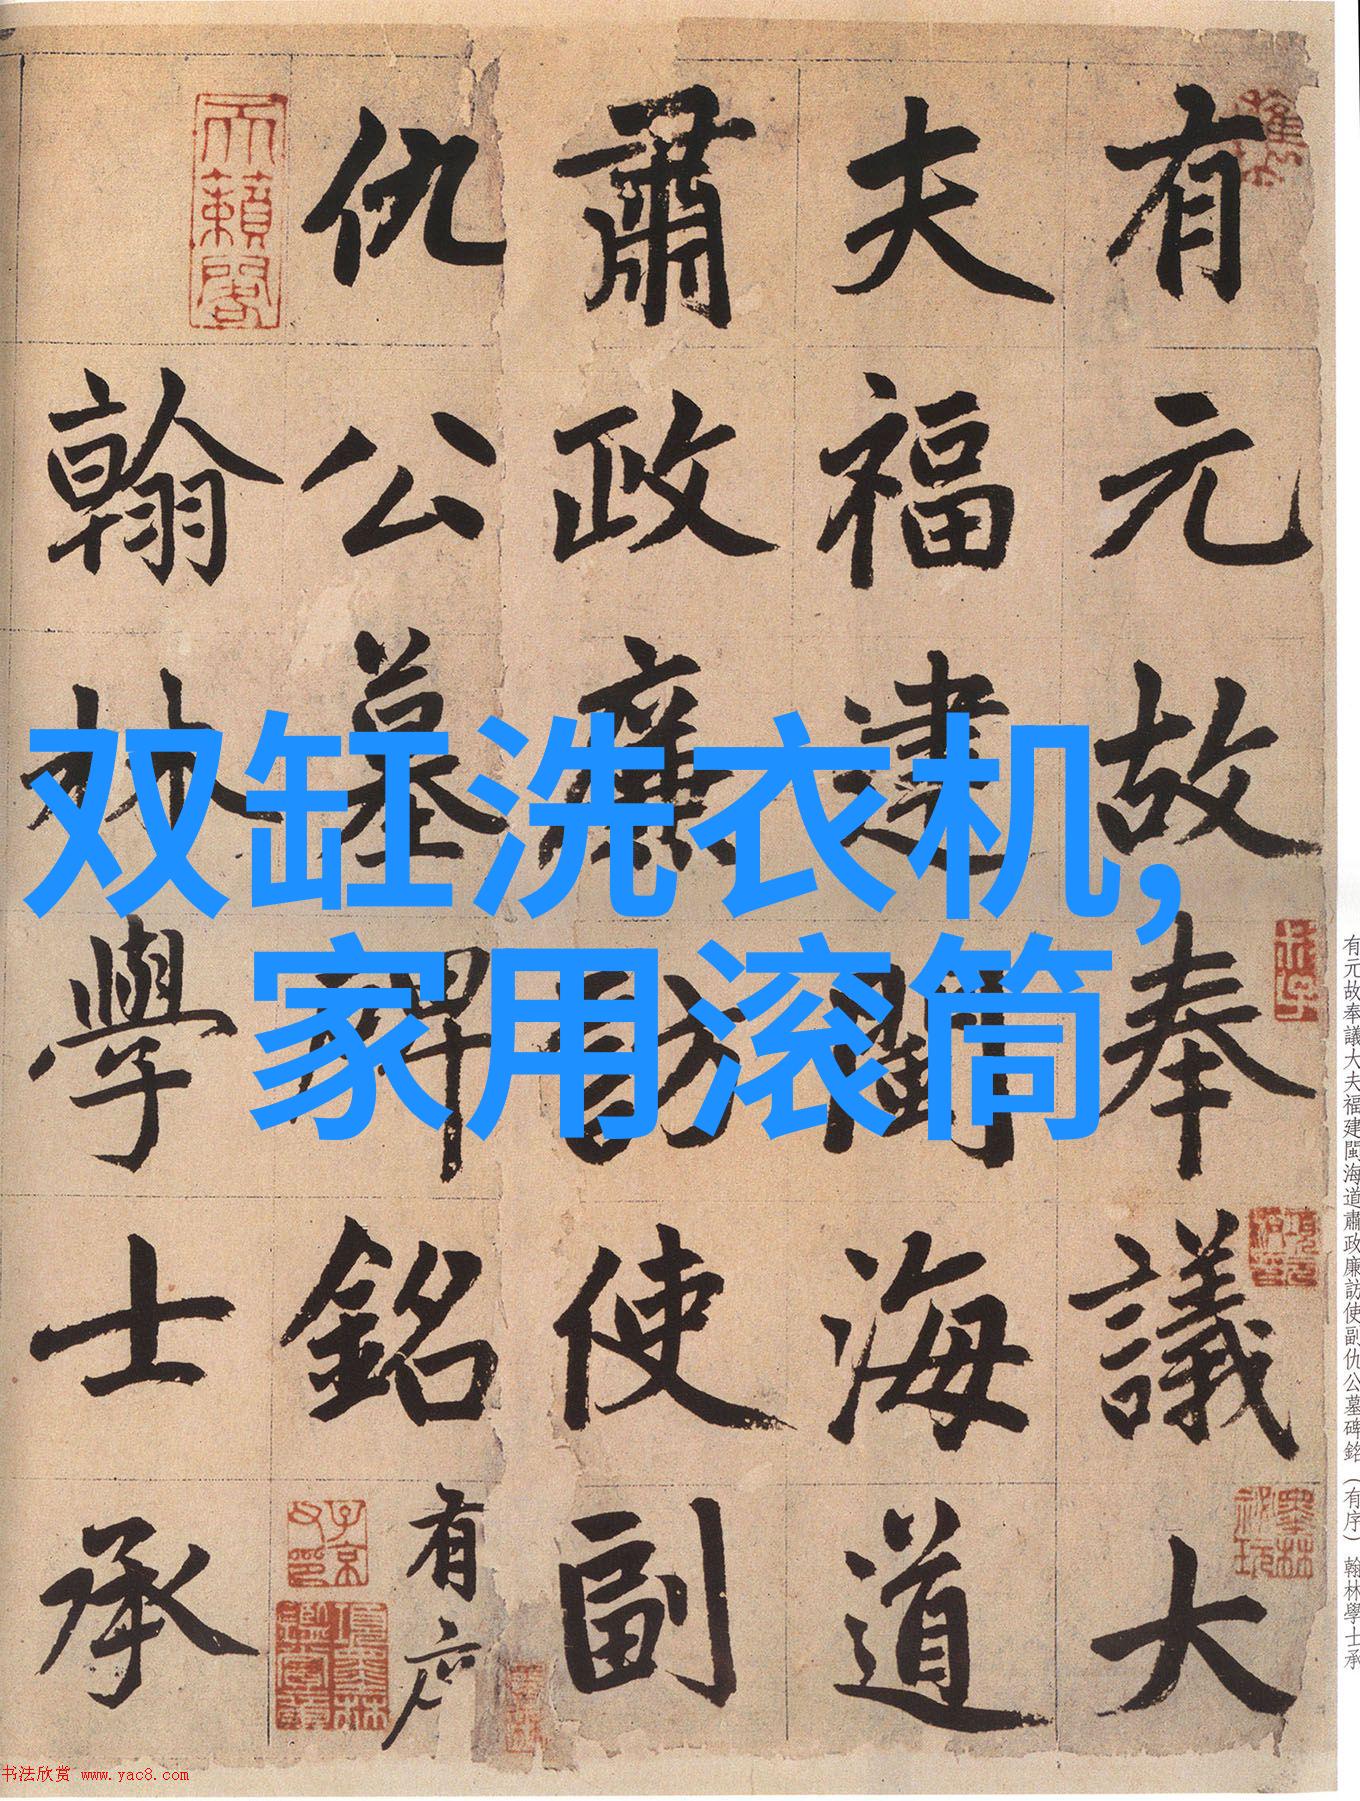 双缸洗衣机,
家用滚筒
有元故奉議大
夫福建閩海道
肅政廉訪使副
仇公墓碑銘有序
翰林學士承
天籟閣
子京父印
有元故奉議大夫福建閩海道肅政廉訪使副仇公墓碑銘（有序）翰林學士承
书法欣赏 www.yac8.com